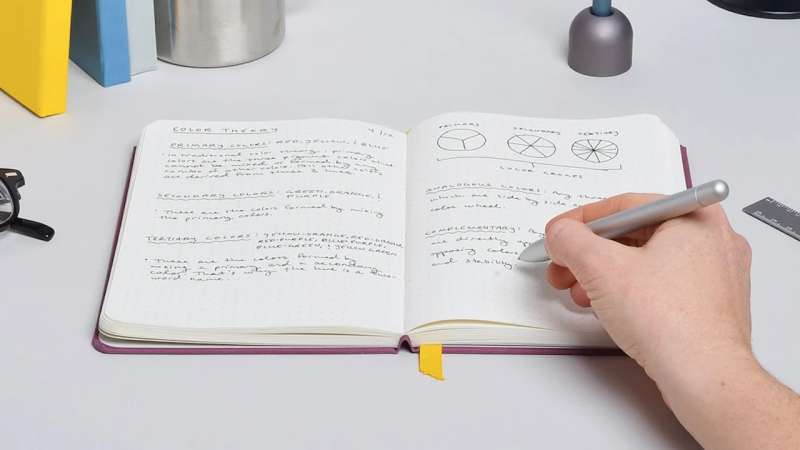 COLOR THEORY 4/12
PRIMARY COLORS: RED, YELLOW, & BLUE
• In traditional color theory, primary
colors are the three pigment colors that
cannot be mixed or formed by any
combo of other colors. All other colors
are derived from these 3 hues.
SECONDARY COLORS: GREEN, ORANGE, &
PURPLE
• These are the colors formed by mixing
the primary colors.
TERTIARY COLORS: YELLOW-ORANGE, RED-ORANGE,
RED-PURPLE, BLUE-PURPLE,
BLUE-GREEN, & YELLOW-GREEN
• These are the colors formed by
mixing a primary and a secondary
color. That's why the hue is a two-
word name.
PRIMARY SECONDARY TERTIARY
COLOR GROUPS
ANALOGOUS COLORS: Any three
which are side by side
color wheel.
COMPLEMENTARY: Any
are directly opp
opposing colors
and stability